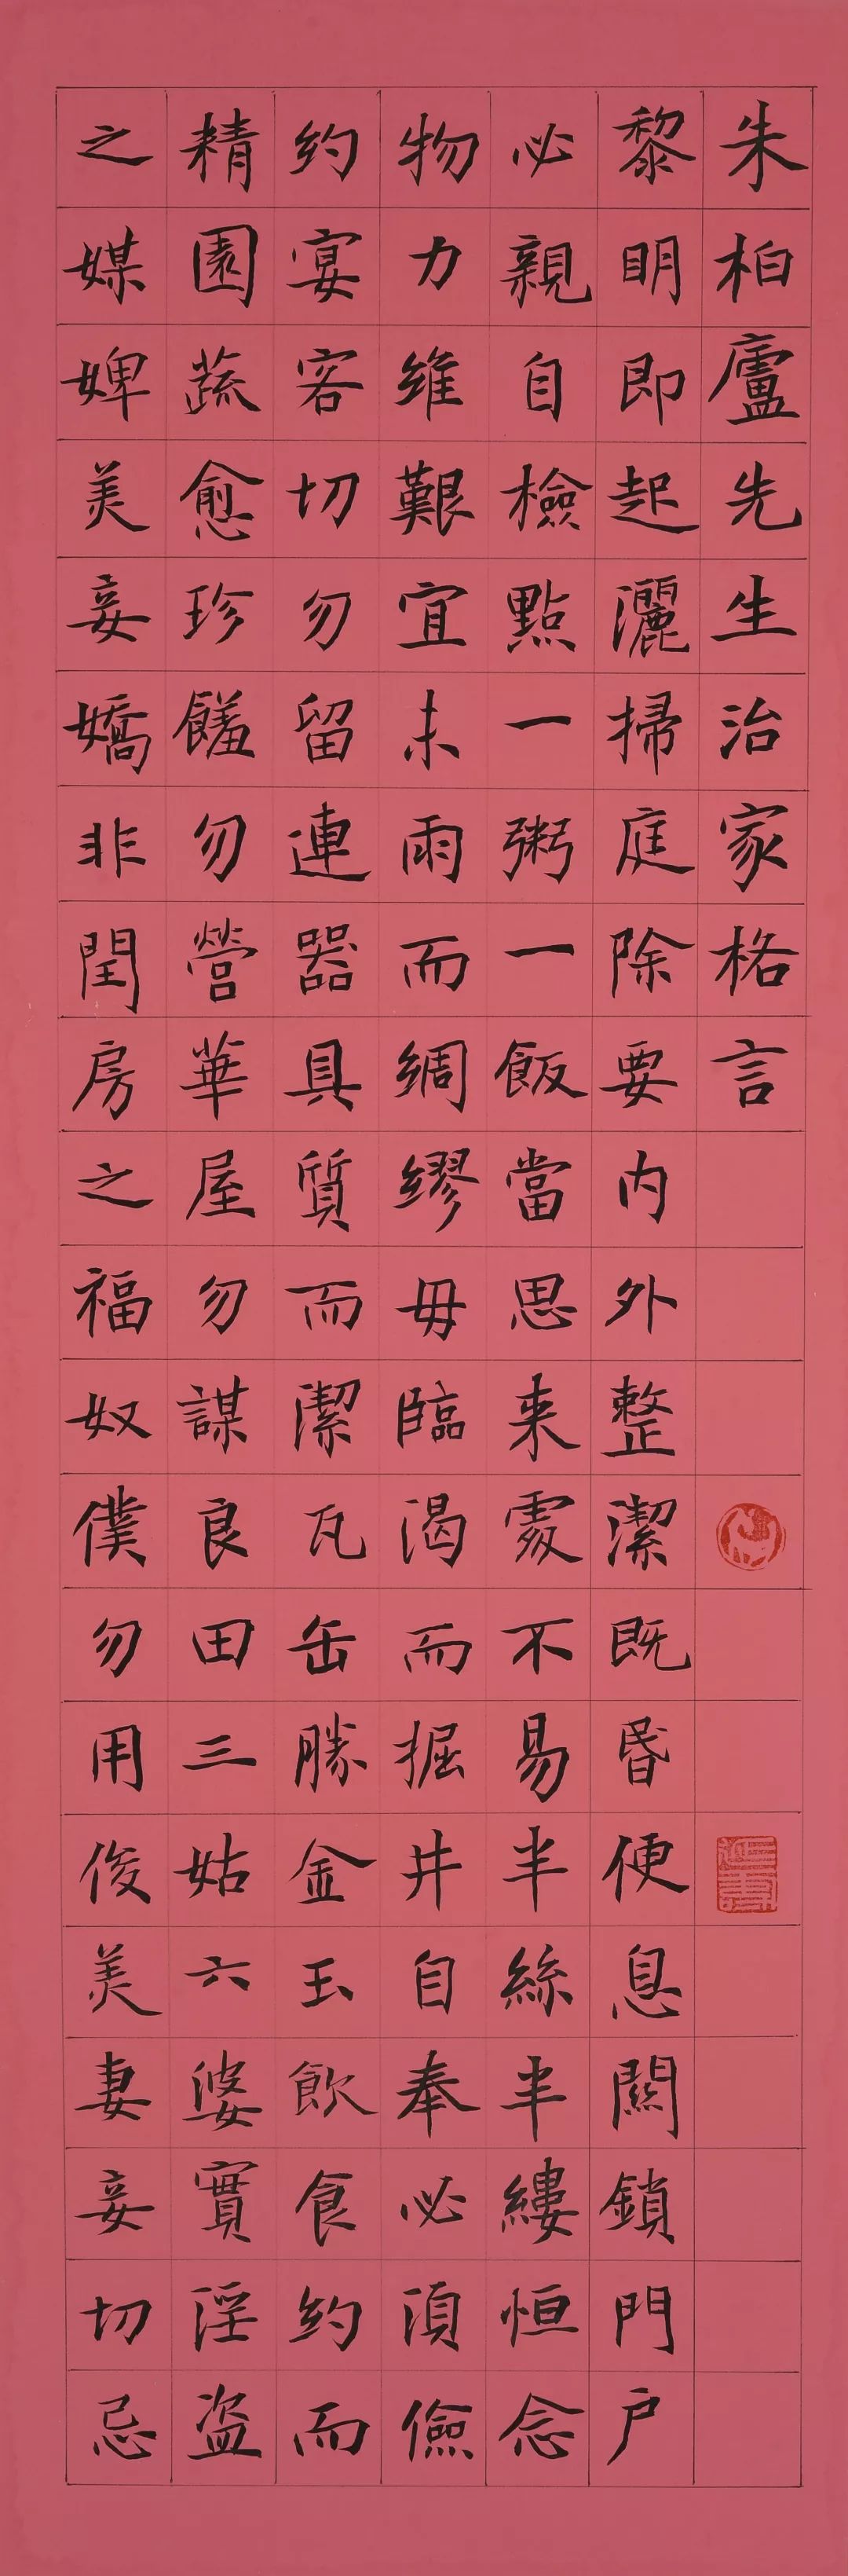 朱柏廬先生治家格言
黎明即起灑掃庭除要内外整潔既昬便息關鎖門户
必親自檢點一粥一飯當思来處不易半絲半縷恒念
物力維艱宜未雨而綢繆毋臨渴而掘井自奉必湏儉
約宴客切勿留連器具質而潔瓦缶勝金玉飲食約而
精園蔬愈珍饈勿營華屋勿謀良田三姑六婆實淫盗
之媒婢美妾嬌非閨房之福奴僕勿用俊美妻妾切忌